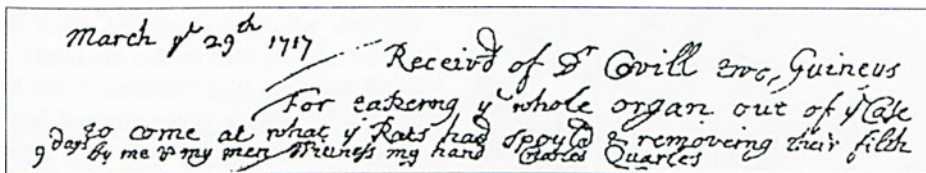 March yͤ 29th 1717
Receivd of Dr Covill two, Guineys
For takeing yͤ whole organ out of yͤ Case
to come at what yͤ Rats had spoyld & removeing their filth
9 days by me & my men Wittness my hand Charles Quarles